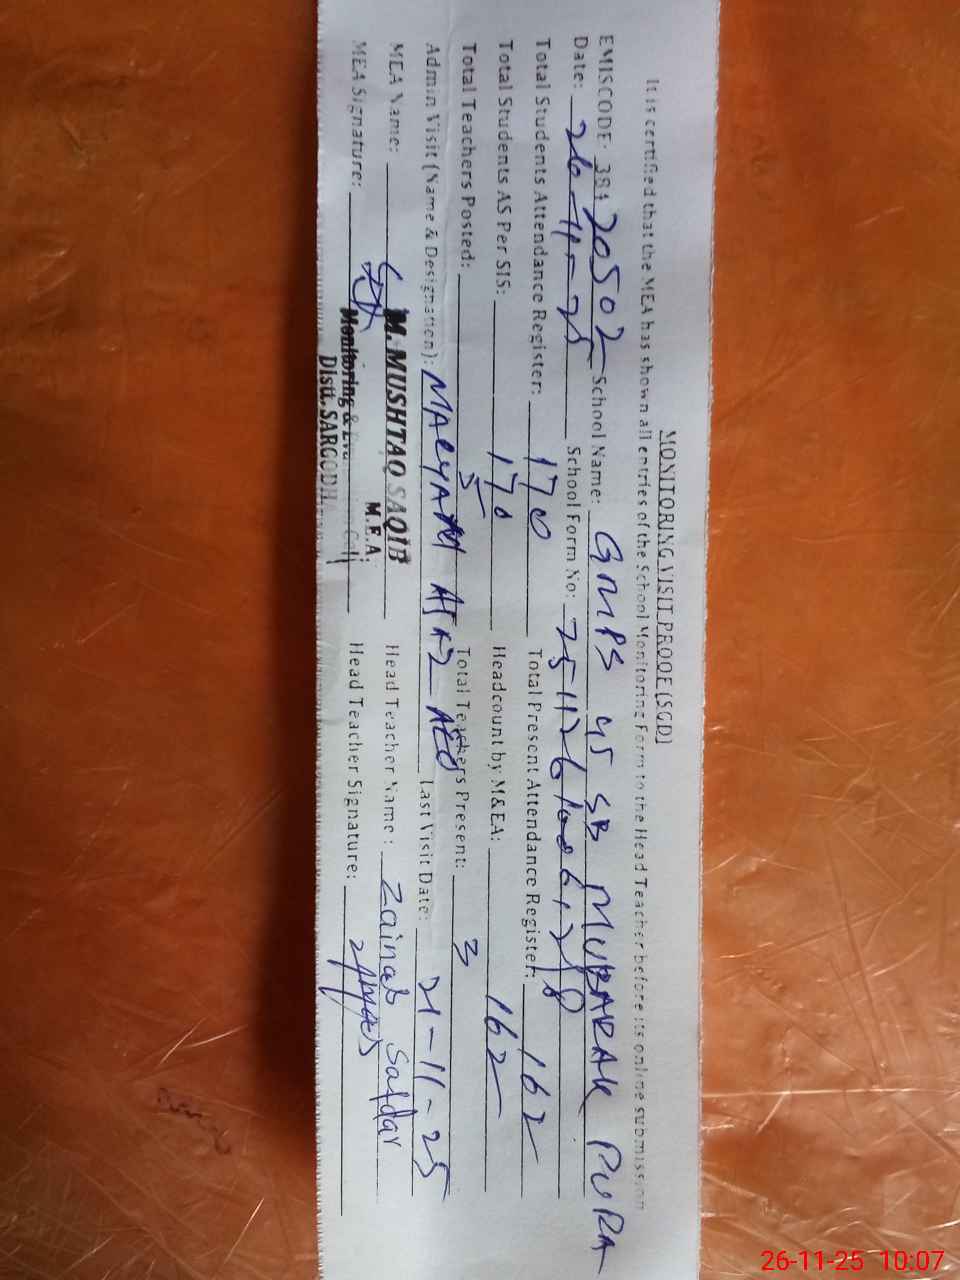 MONITORING VISIT PROOF (SGD)
It is certified that the MEA has shown all entries of the School Monitoring Form to the Head Teacher before its online submission
EMISCODE: 38420502 School Name: GMPS 45 SB MUBARAK PURA
Date: 26-11-25 School Form No:
Total Students Attendance Register: 170 Total Present Attendance Register: 162
Total Students AS Per SIS: 170 Headcount by M&EA: 162
Total Teachers Posted: 5 Total Teachers Present: 3
Admin Visit (Name & Designation): MARYAM AEO Last Visit Date: 21-11-25
MEA Name: M. MUSHTAQ SAQIB Head Teacher Name: Zainab Safdar
M.E.A.
MEA Signature: Monitoring & Head Teacher Signature:
Distt. SARGODH
26-11-25 10:07